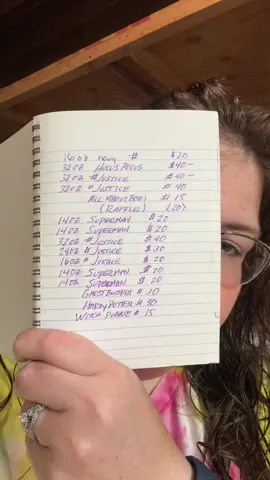 16oz navy # $20
32oz Hocus Pocus $40-
32oz #Justice $40-
32oz #Justice $40
All About Boo! $15
(Raffle) (20)
14oz Superman $20
14oz Superman $20
32oz #Justice $40
24oz #Justice $30
16oz #Justice $20
14oz Superman $20
14oz Superman $20
Ghostbusters $30
Harry Potter $30
Witch Please $15